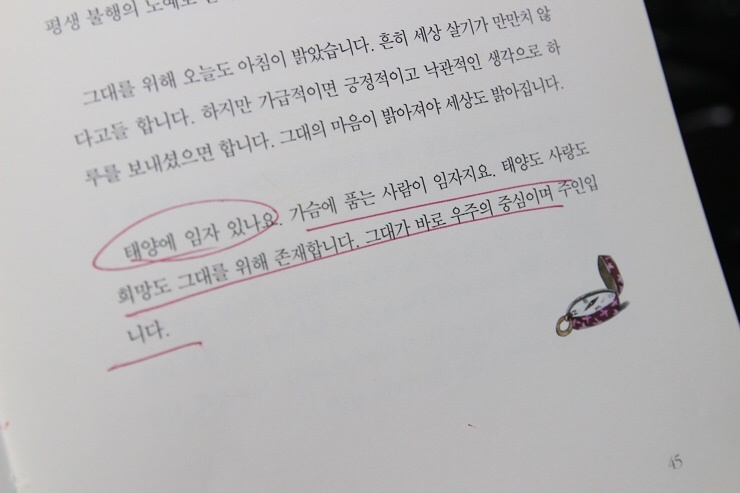 평생 불행의 노예로
그대를 위해 오늘도 아침이 밝았습니다. 흔히 세상 살기가 만만치 않
다고들 합니다. 하지만 가급적이면 긍정적이고 낙관적인 생각으로 하
루를 보내셨으면 합니다. 그대의 마음이 밝아져야 세상도 밝아집니다.
태양에 임자 있나요. 가슴에 품는 사람이 임자지요. 태양도 사랑도
희망도 그대를 위해 존재합니다. 그대가 바로 우주의 중심이며 주인입
니다.
45